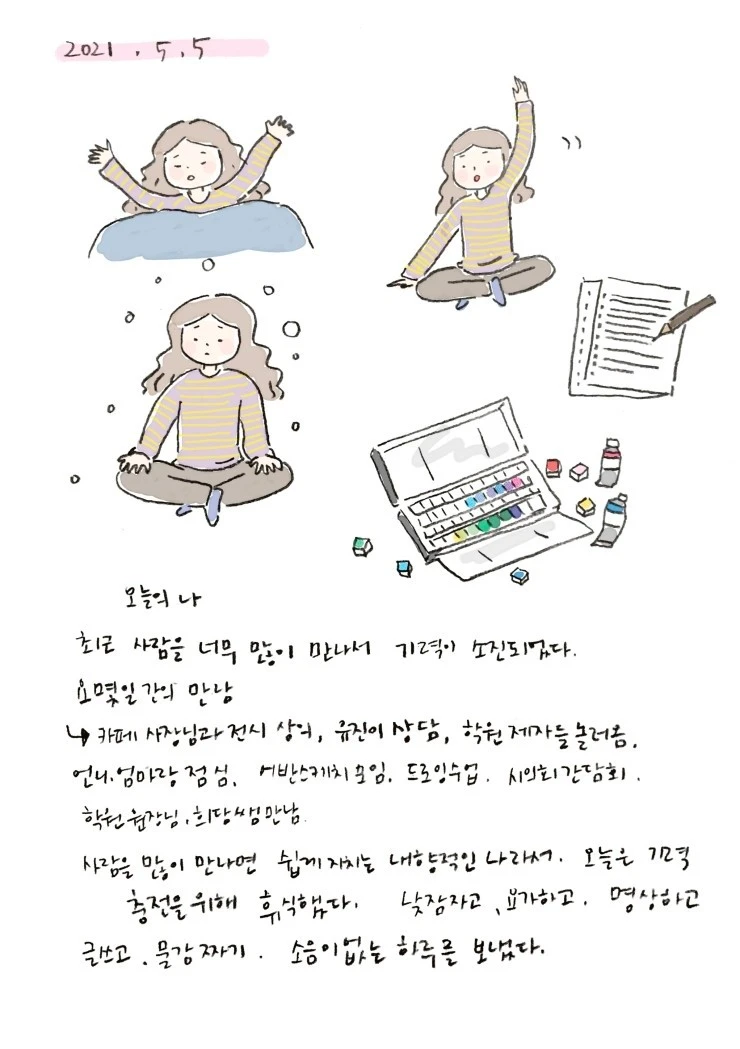 2021. 5. 5
오늘의 나
최근 사람을 너무 많이 만나서 기력이 소진되었다.
요몇일간의 만남
↳ 카페 사장님과 전시 상의, 유진이 상담, 학원 제자들 놀러옴,
언니, 엄마랑 점심, 어반스케치 모임, 드로잉수업. 시의회 간담회.
학원 원장님, 희당쌤 만남.
사람을 많이 만나면 쉽게 지치는 내향적인 나라서. 오늘은 기력
충전을 위해 휴식했다. 낮잠자고, 요가하고. 명상하고
글쓰고. 물감짜기. 소음이없는 하루를 보냈다.